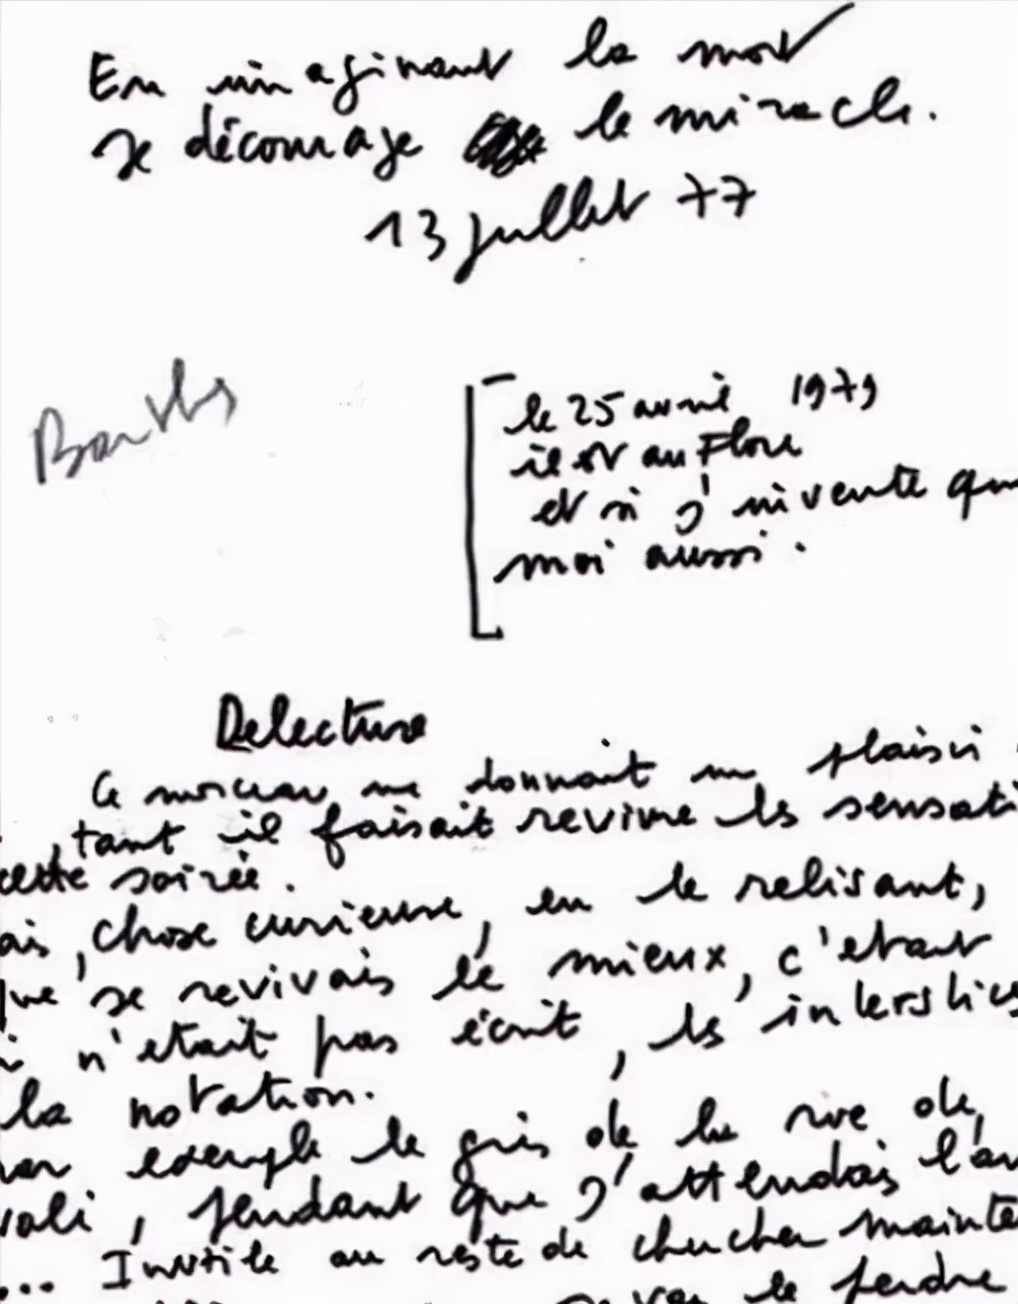 En imaginant la mort
je décourage le miracle.
13 juillet 77
Barthes
le 25 avril 1979
il est au Flore
et si j'invente que
moi aussi.
Relecture
Ce morceau me donnait un plaisir
, tant il faisait revivre les sensati
cette soirée.
ais, chose curieuse, en le relisant,
que je revivais le mieux, c'etait
i n'etait pas écrit, les interstices
la notation.
par exemple le gris de la rue de
voli, pendant que j'attendais l'au
... Inutile au reste de chercher mainte
le perdre